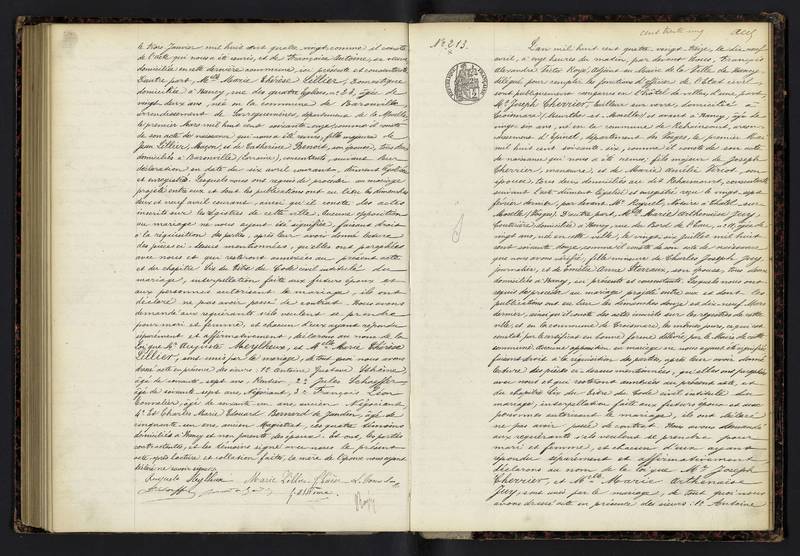 le trois Janvier mil huit cent quatre vingt, comme il conste
de l'acte qui nous a été remis, et de Françoise Antoine, sa veuve
domiciliée en cette dernière commune, ici présente et consentante
D'autre part, Melle Marie Thérèse Lillier, Domestique
domiciliée à Nancy, rue des quatre Eglises, no 28, âgée de
vingt deux ans, née en la commune de Baronville
arrondissement de Sarreguemines, département de la Moselle
le premier Mars mil huit cent soixante onze, comme il conste
de son acte de naissance qui nous a été remis, fille majeure de
Jean Lillier, Maçon, et de Catherine Benoit, son épouse, tous deux
domiciliés à Baronville (Lorraine), consentants, suivant leur
déclaration en date du six avril courant, dûment légalisée
et enregistrée. Lesquels nous ont requis de procéder au mariage
projeté entre eux et dont les publications ont eu lieu les dimanches
deux et neuf avril courant, ainsi qu'il conste des actes
inscrits sur les registres de cette ville. Aucune opposition
au mariage ne nous ayant été signifiée, faisant droit
à la réquisition des parties, après leur avoir donné lecture
des pièces ci-dessus mentionnées, qu'elles ont paraphées
avec nous et qui resteront annexées au présent acte
et du chapitre six du titre du Code civil intitulé du
mariage, interpellation faite aux futurs époux et
aux personnes autorisant le mariage, ils ont
déclaré ne pas avoir passé de contrat. Nous avons
demandé aux requérants s'ils veulent se prendre
pour mari et femme, et chacun d'eux ayant répondu
séparément et affirmativement, déclarons au nom de la
loi que Mr Auguste Meylheuc, et Melle Marie Thérèse
Lillier, sont unis par le mariage, de tout quoi nous avons
dressé acte en présence des sieurs: 1o Antoine Gustave
âgé de soixante sept ans, Rentier, 2o Jules Schaeffer
âgé de soixante sept ans, Négociant, 3o François Léon
Tonnelier, âgé de soixante un ans, ancien Négociant
4o Et Charles Marie Edouard Bernard de Jandin, âgé de
cinquante un ans, ancien Magistrat, ces quatre témoins
domiciliés à Nancy et non parents des époux. Et ont, les parties
contractantes, et les témoins signé avec nous le présent
acte, après lecture et collation faite, la mère de l'époux nous ayant
déclaré ne savoir signer.
Auguste Marie Lillier
cent trente cinq
No 213.
L'an mil huit cent quatre vingt treize, le dix neuf
avril, à onze heures du matin, par devant Nous, François
Alexandre Victor Adjoint au Maire de la Ville de Nancy
délégué pour remplir les fonctions d'officier de l'Etat civil
sont publiquement comparus en l'hôtel de ville, d'une part,
Mr Joseph Cherrier, tailleur sur verre, domicilié à
Croismare (Meurthe et Moselle) et avant à Nancy, âgé de
vingt sept ans, né en la commune de Rehaincourt, arron-
dissement d'Epinal, département des Vosges, le premier
mil huit cent soixante six, comme il conste de son acte
de naissance qui nous a été remis, fils majeur de Joseph
Cherrier, manœuvre, et de Marie Amélie son
épouse, tous deux domiciliés au dit Rehaincourt, consentants
suivant l'acte dûment légalisé et enregistré reçu le vingt sept
février dernier, par devant Me Notaire à Châtel sur
Moselle (Vosges). D'autre part, Melle Marie Arthémise Jacy,
Couturière, domiciliée à Nancy, rue du Bord de l'Eau, no âgée de
vingt ans, née en cette ville, le vingt six juillet mil huit
cent soixante douze, comme il conste de son acte de naissance
que nous avons vérifié, fille mineure de Charles Joseph Jacy,
journalier, et de Amélie Anne son épouse, tous deux
domiciliés à Nancy, ici présents et consentants. Lesquels nous ont
requis de procéder au mariage projeté entre eux et dont les
publications ont eu lieu les dimanches douze et dix neuf Mars
dernier, ainsi qu'il conste des actes inscrits sur les registres de cette
ville, et en la commune de Croismare, les mêmes jours, ce qui est
constaté par le certificat en bonne forme délivré par le Maire de cette
commune. Aucune opposition au mariage ne nous ayant été signifiée
faisant droit à la réquisition des parties, après leur avoir donné
lecture des pièces ci-dessus mentionnées, qu'elles ont paraphées
avec nous et qui resteront annexées au présent acte, et
du chapitre six du titre du Code civil intitulé du
mariage, interpellation faite aux futurs époux et aux
personnes autorisant le mariage, ils ont déclaré
ne pas avoir passé de contrat. Nous avons demandé
aux requérants s'ils veulent se prendre pour
mari et femme, et chacun d'eux ayant
répondu séparément et affirmativement
déclarons au nom de la loi que Mr Joseph
Cherrier, et Melle Marie Arthémise
Jacy, sont unis par le mariage, de tout quoi nous
avons dressé acte en présence des sieurs: 1o Antoine